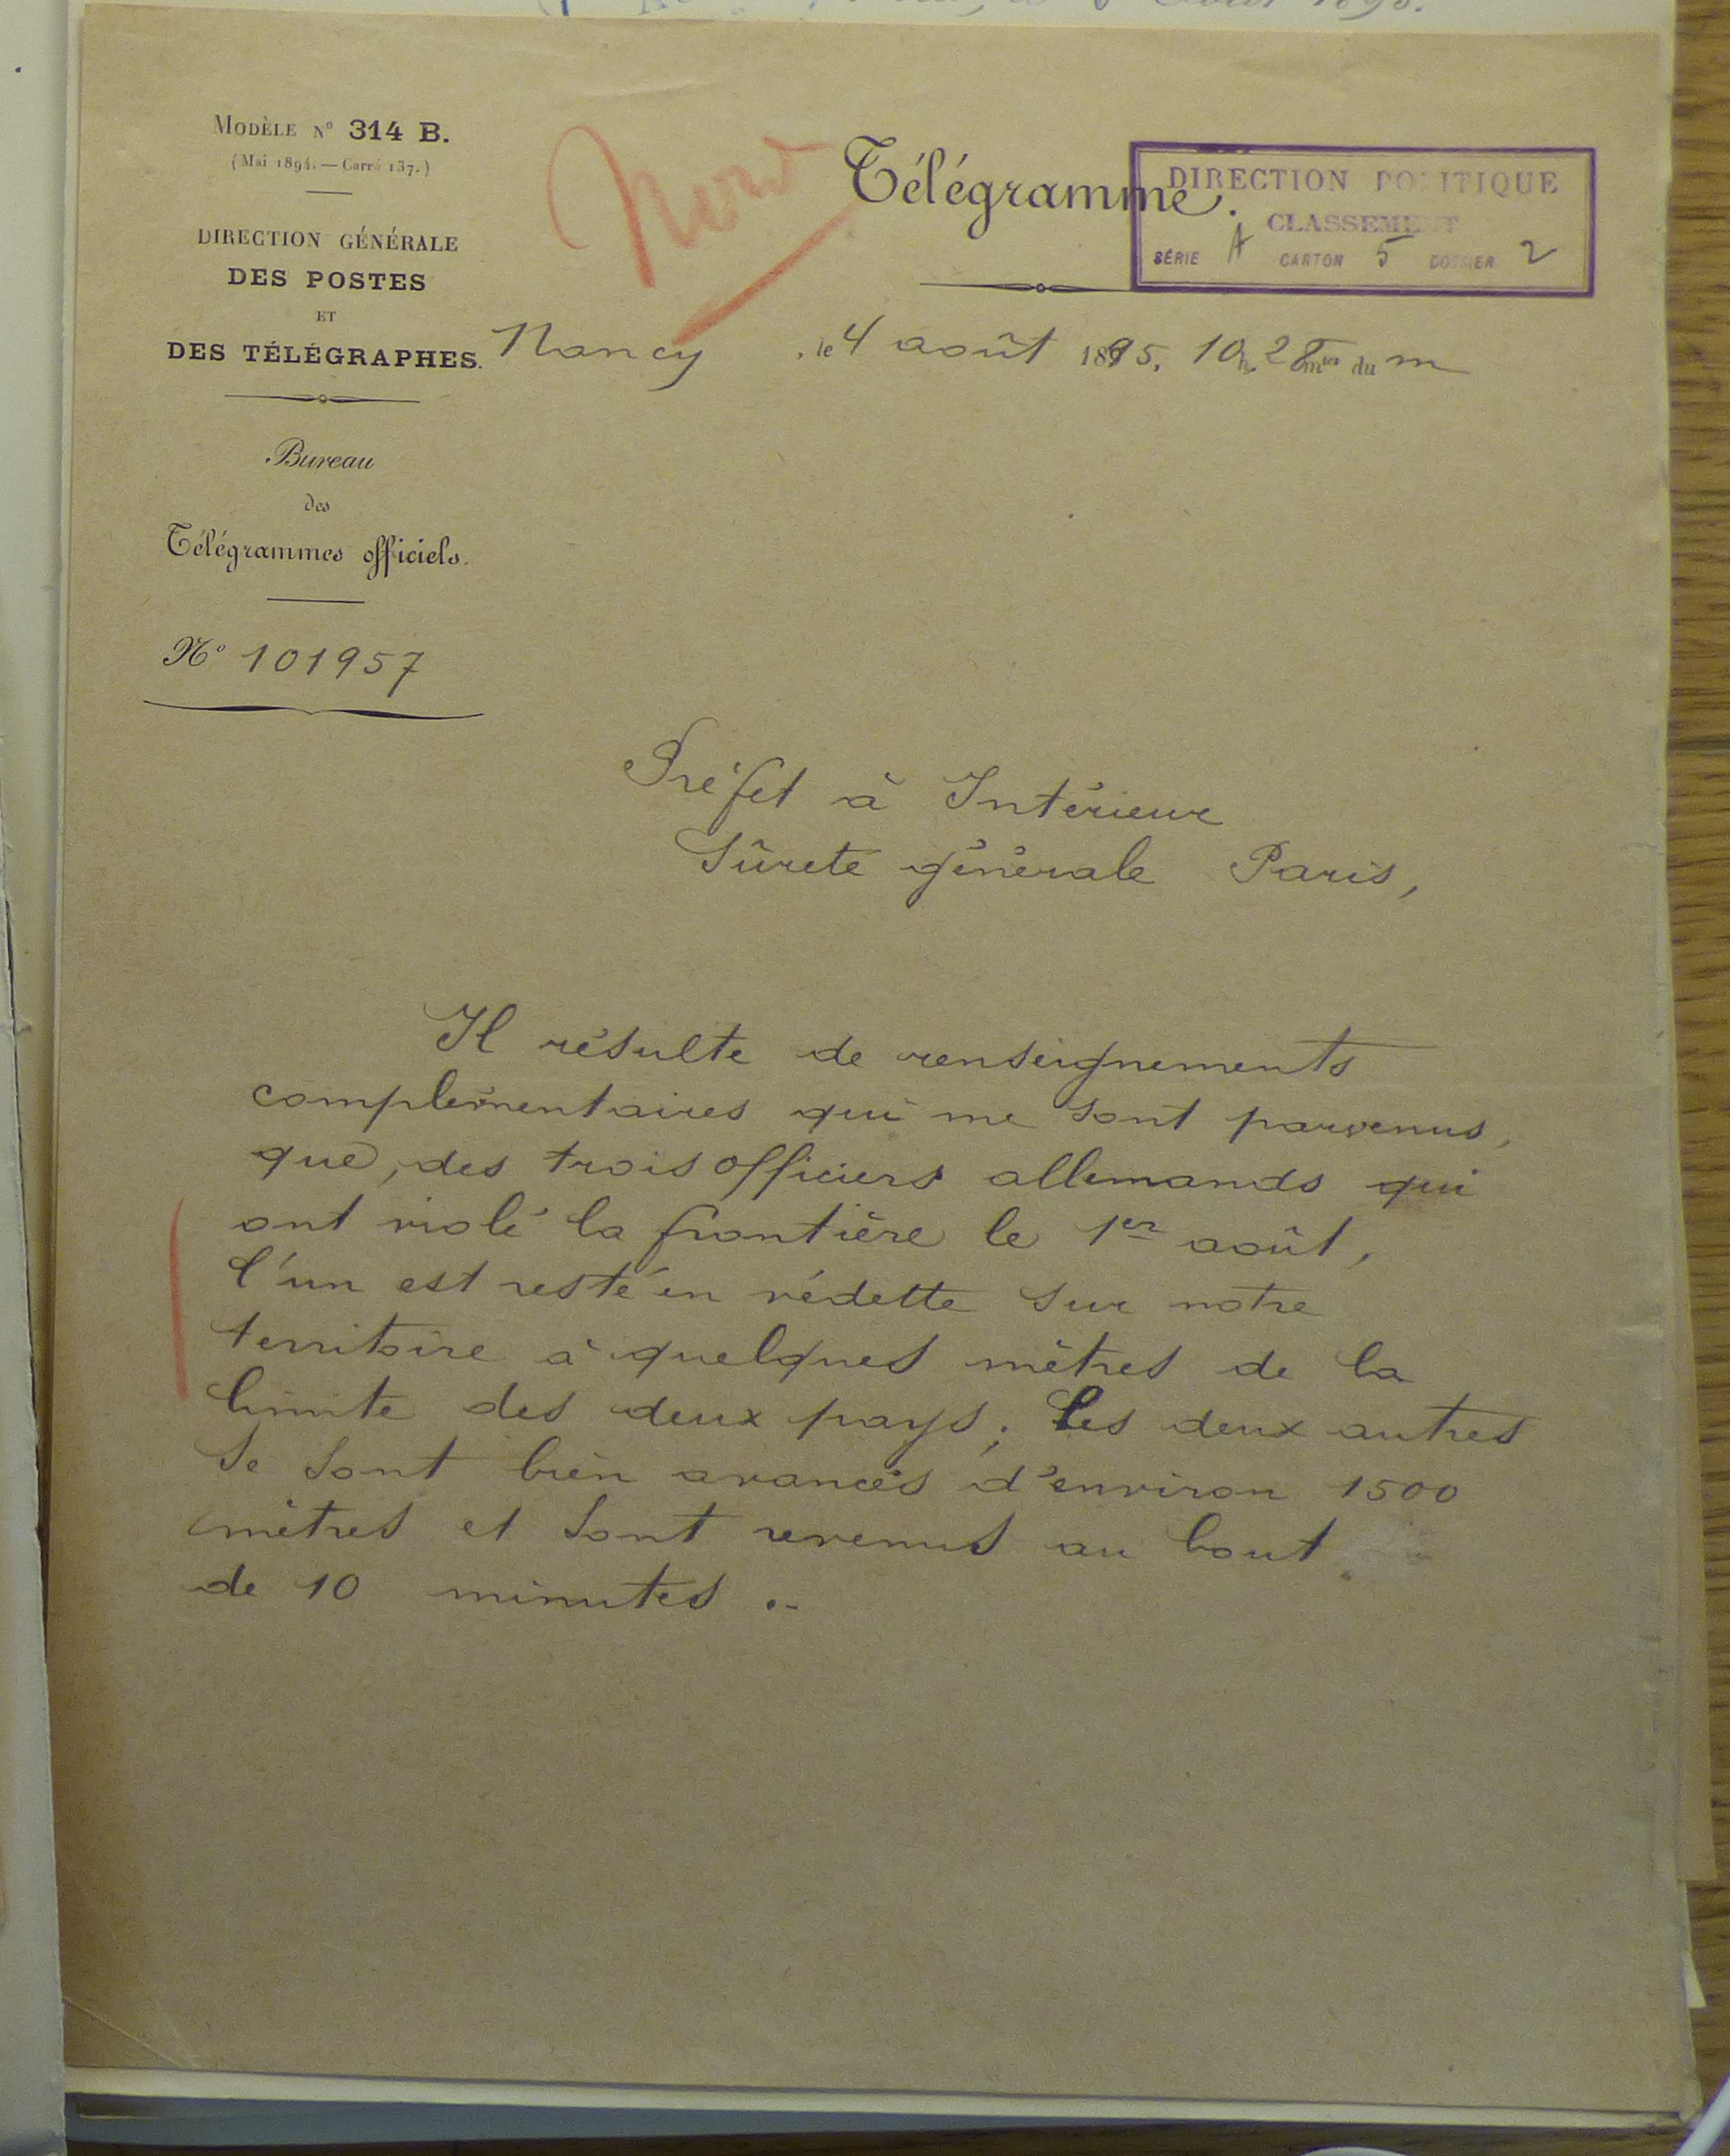 Modèle N° 314 B.
(Mai 1894. — Carré 137.)
DIRECTION GÉNÉRALE
DES POSTES
ET
DES TÉLÉGRAPHES.
Bureau
des
Télégrammes officiels.
N° 101957
Nord
Télégramme.
DIRECTION POLITIQUE
CLASSEMENT
SÉRIE A CARTON 5 DOSSIER 2
Nancy, le 4 août 1895, 10h 28 mtes du m
Préfet à Intérieur
Sûreté générale Paris,
Il résulte de renseignements
complémentaires qui me sont parvenus,
que, des trois officiers allemands qui
ont violé la frontière le 1er août,
l'un est resté en védette sur notre
territoire à quelques mètres de la
limite des deux pays; Les deux autres
se sont bien avancés d'environ 1500
mètres et sont revenus au bout
de 10 minutes .-